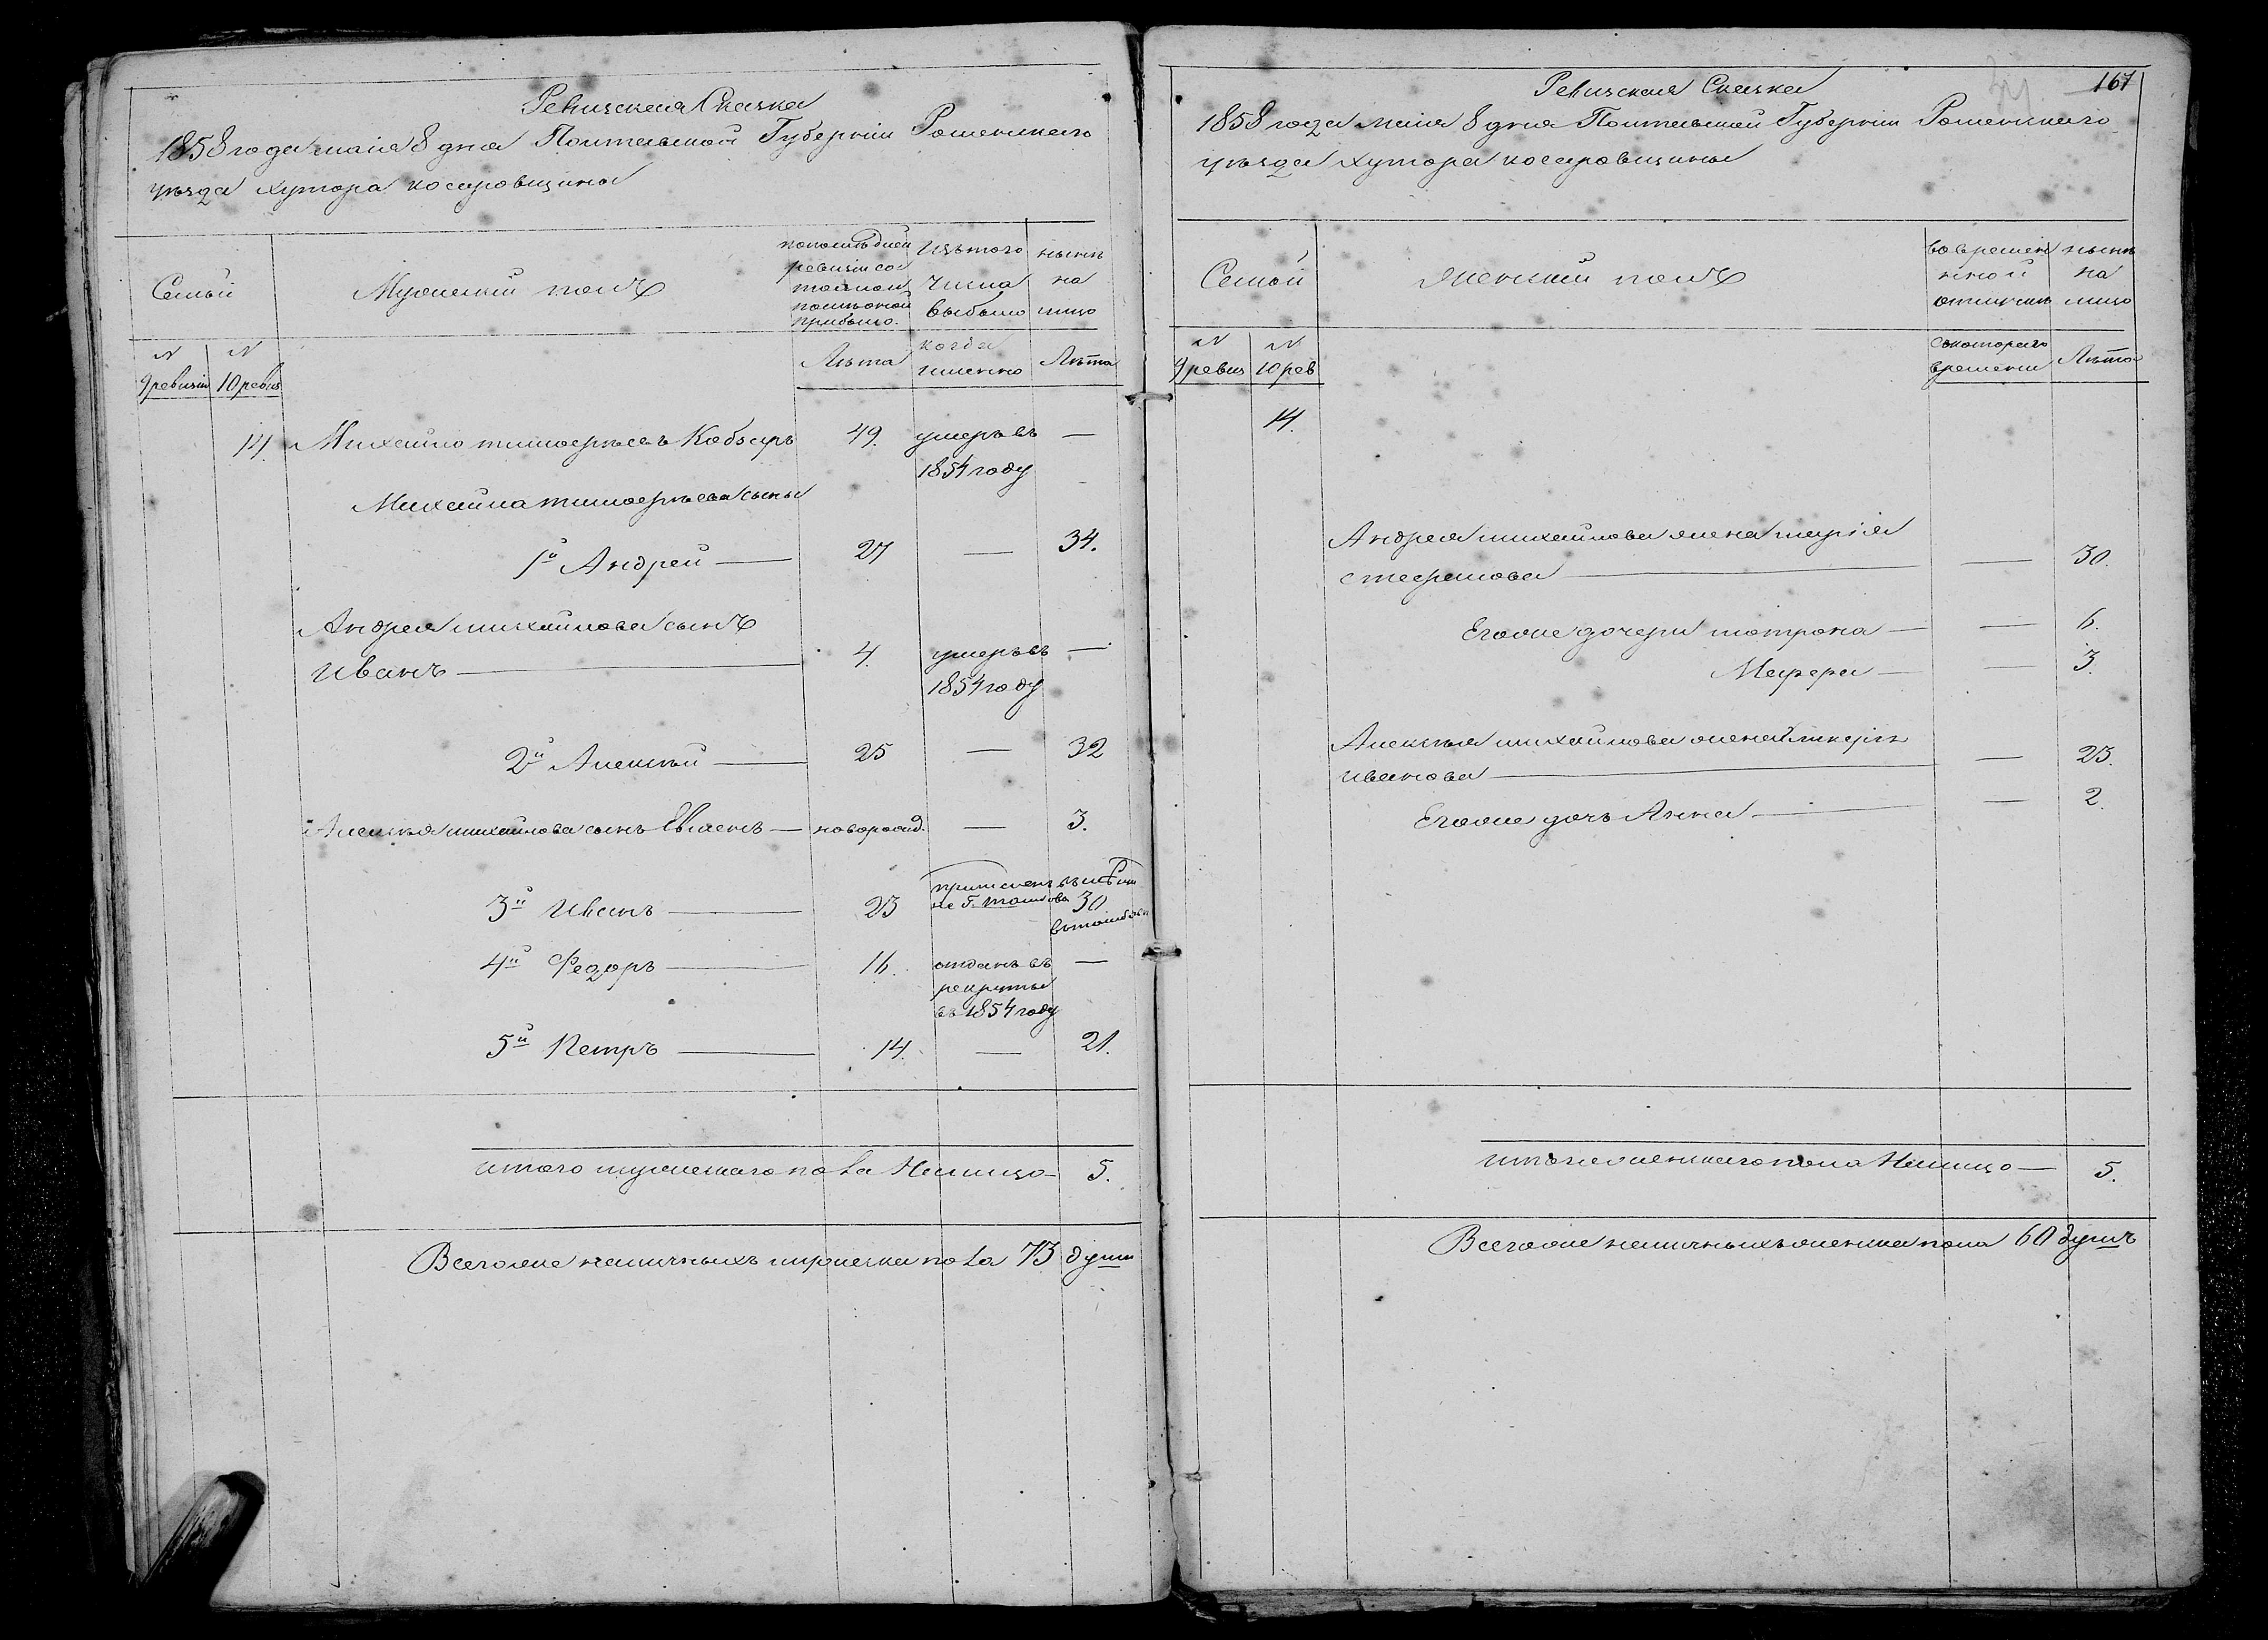 Ревизская Сказка
1858 года маия 8 дня Полтавской Губернии Роменскаго
уѣзда хутора косаровщины
Семьи
Мужеский полъ
по последней
ревизіи со
стояло и
после оной
прибыло.
Изъ того
числа
выбыло
нынѣ
на
лицо
N
9 ревизіи
N
10 ревиз
Лѣта
когда
именно
Лѣта
14. Михайло тимофѣевъ Кобзарь 49. умеръ въ —
1854 году
Михайла тимофѣева сыны
1й Андрей — 27 — 34.
Андрея михайлова сынъ
Иванъ — 4. умеръ въ —
1854 году
2й Алексѣй — 25 — 32
Алексѣя михайлова сынъ — новорожд. — 3.
3й Иванъ — 23 30
4й Федоръ — 16. отданъ въ —
рекруты
въ 1854 году
5й Петръ — 14. — 21.
итого мужескаго пола На лицо — 5.
Всего же наличныхъ мужеска пола 73 души
167
Ревизская Сказка
1858 года маия 8 дня Полтавской Губерніи Роменскаго
уѣзда хутора косаровщины
Семьи
Женский полъ
во времен
нной
отлучкѣ
нынѣ
на
лицо
N
9 ревиз
N
10 рев
съ котораго
времени
Лѣта
14.
Андрея михайлова жена марія
стефанова — — 30.
Его же дочери мотрона — — 6.
— — 3.
Алексѣя михайлова жена
иванова — — 25.
Его же дочь Анна — — 2.
итого женскаго пола На лицо — 5.
Всего же наличныхъ женска пола 60 душъ